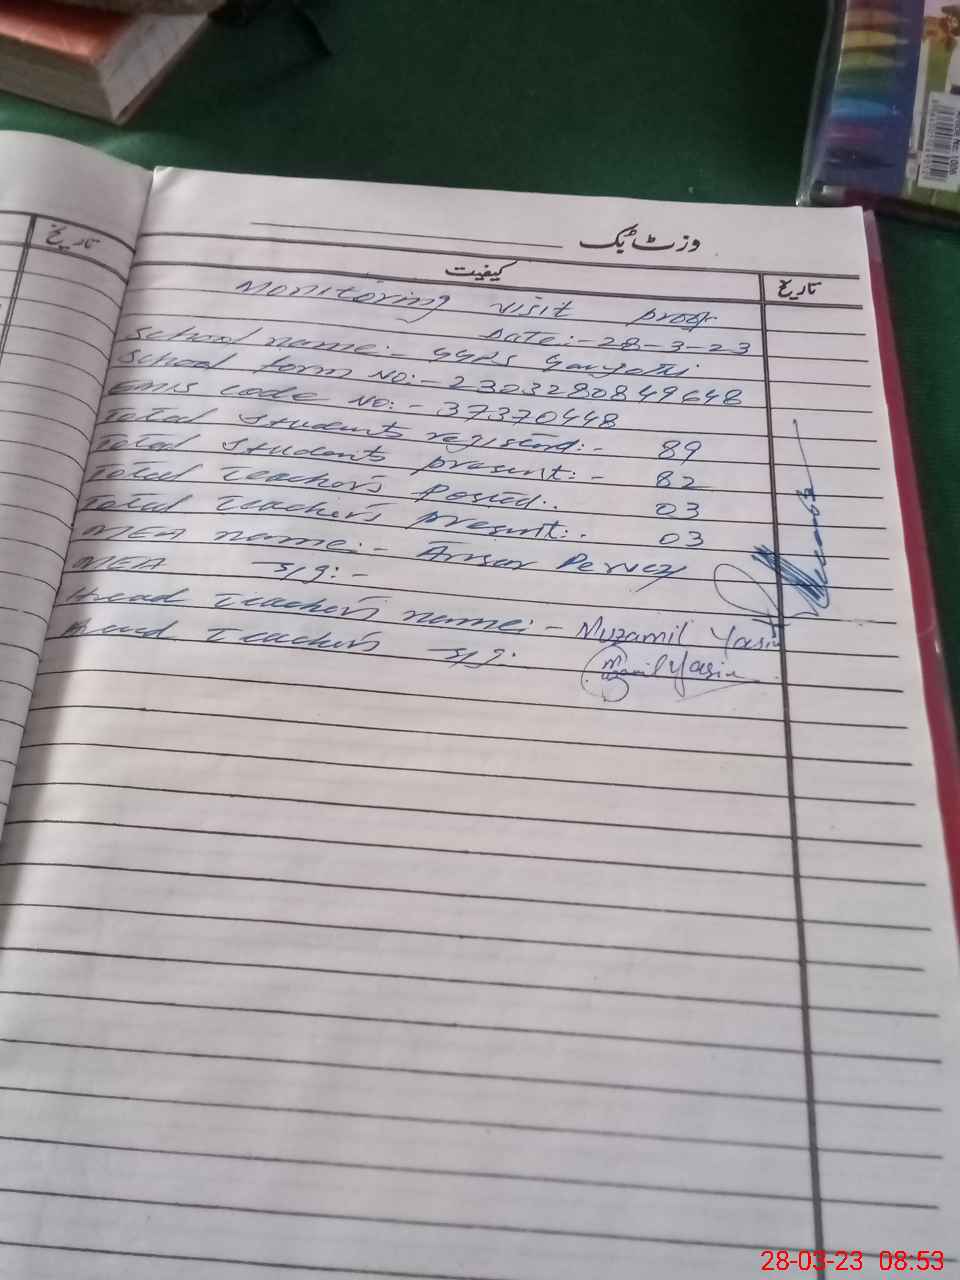 وزٹ بک
تاریخ
کیفیت
تاریخ
Monitoring visit proof
Date:- 28-3-23
School name:- GGPS
School form NO:- 2303280849648
EMIS code NO:- 37370448
Total students registerd:- 89
Total students present:- 82
Total Teacher's Posted:. 03
Total Teacher's present:. 03
MEA name:- Ansar Pervez
MEA sig:-
Head Teacher's name:- Muzamil Yasin
Head Teacher's sig:
Muzamil Yasin
28-03-23 08:53